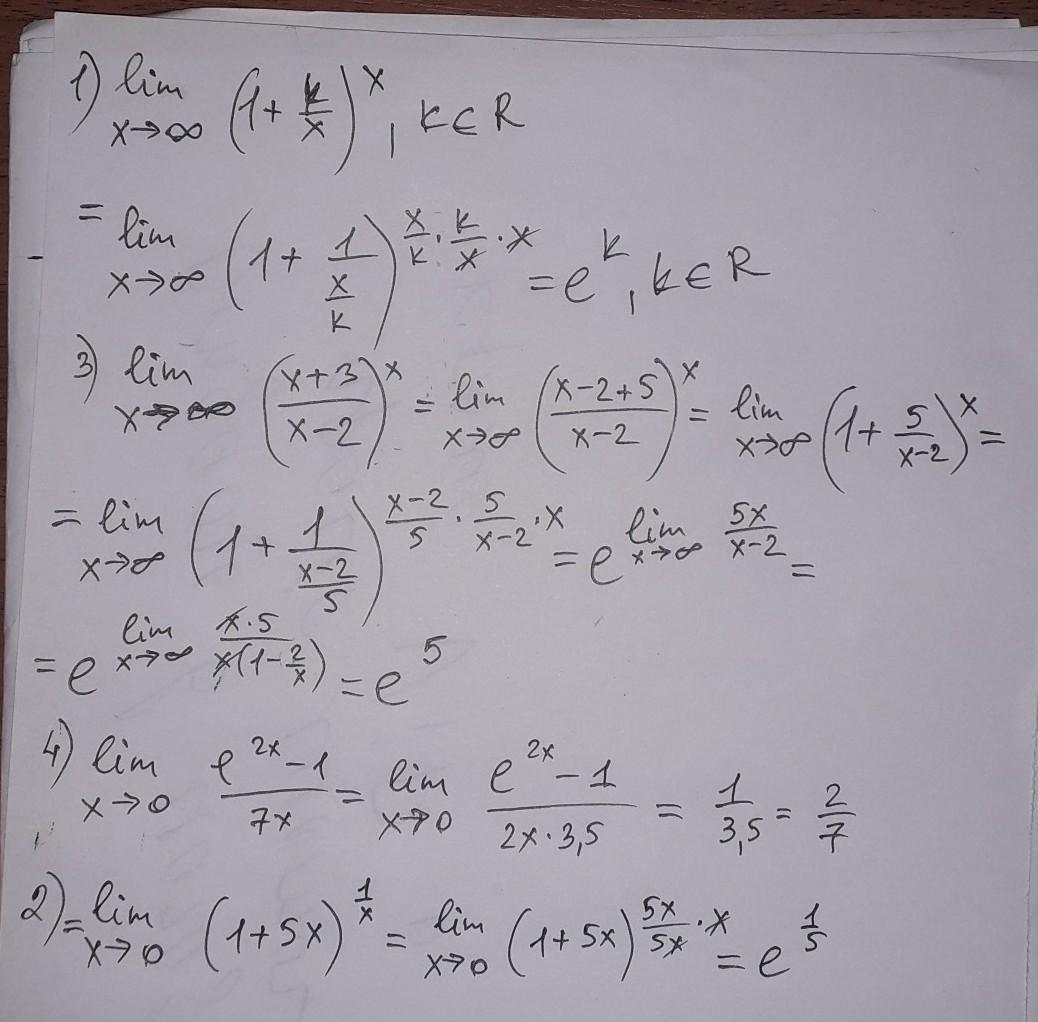 1) lim x→∞ (1 + k/x)^x, k∈R
= lim x→∞ (1 + 1/(x/k))^(x/k · k/x · x) = e^k, k∈R
3) lim x→∞ ((x+3)/(x-2))^x = lim x→∞ ((x-2+5)/(x-2))^x = lim x→∞ (1 + 5/(x-2))^x =
= lim x→∞ (1 + 1/((x-2)/5))^((x-2)/5 · 5/(x-2) · x) = e^(lim x→∞ 5x/(x-2)) =
= e^(lim x→∞ (x·5)/(x(1-2/x))) = e^5
4) lim x→0 (e^(2x) - 1)/(7x) = lim x→0 (e^(2x) - 1)/(2x·3,5) = 1/3,5 = 2/7
2) = lim x→0 (1+5x)^(1/x) = lim x→0 (1+5x)^(5x/5x · x) = e^(1/5)